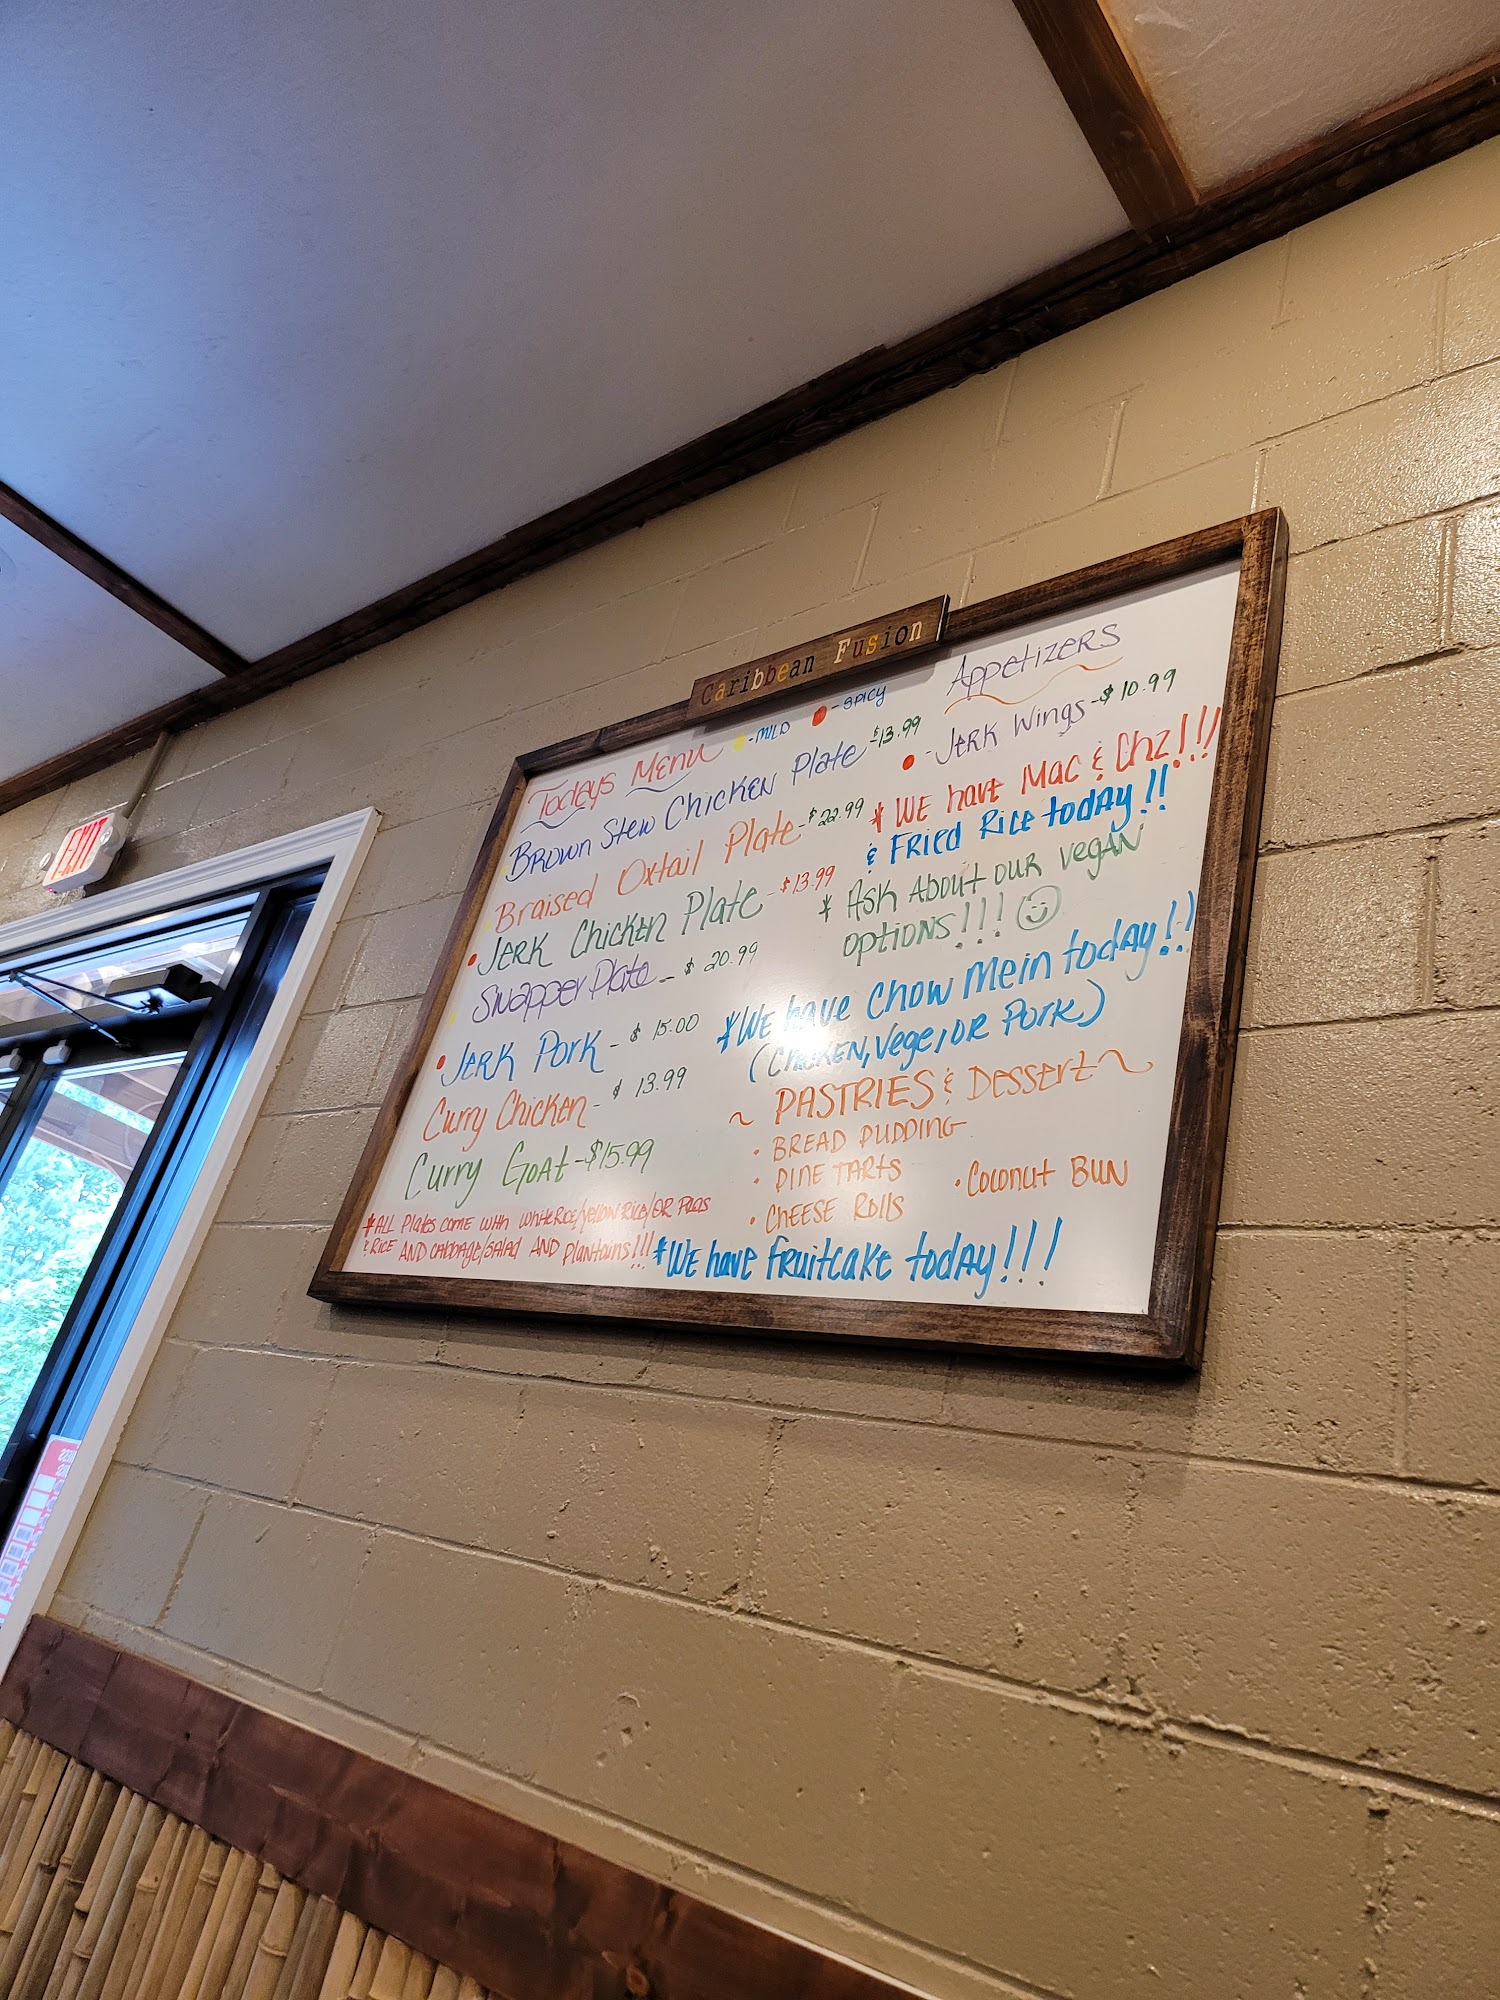 EXIT
Caribbean Fusion
Todays Menu
- MILD
- SPICY
Brown Stew Chicken Plate - $13.99
Braised Oxtail Plate - $22.99
Jerk Chicken Plate - $13.99
Snapper Plate - $20.99
Jerk Pork - $15.00
Curry Chicken - $13.99
Curry Goat - $15.99
*ALL Plates come with white Rice/yellow Rice/OR Peas
& RICE AND cabbage/salad AND plantains!!!
Appetizers
- Jerk Wings - $10.99
* WE have Mac & Chz!!!
& Fried Rice today!!
* Ask About our vegan
options!!!
*WE have Chow Mein today!!
(Chicken, Vege, OR Pork)
~ PASTRIES & Dessert ~
• BREAD PUDDING
• PINE TARTS
• CHEESE Rolls
• Coconut BUN
*WE have fruitcake today!!!